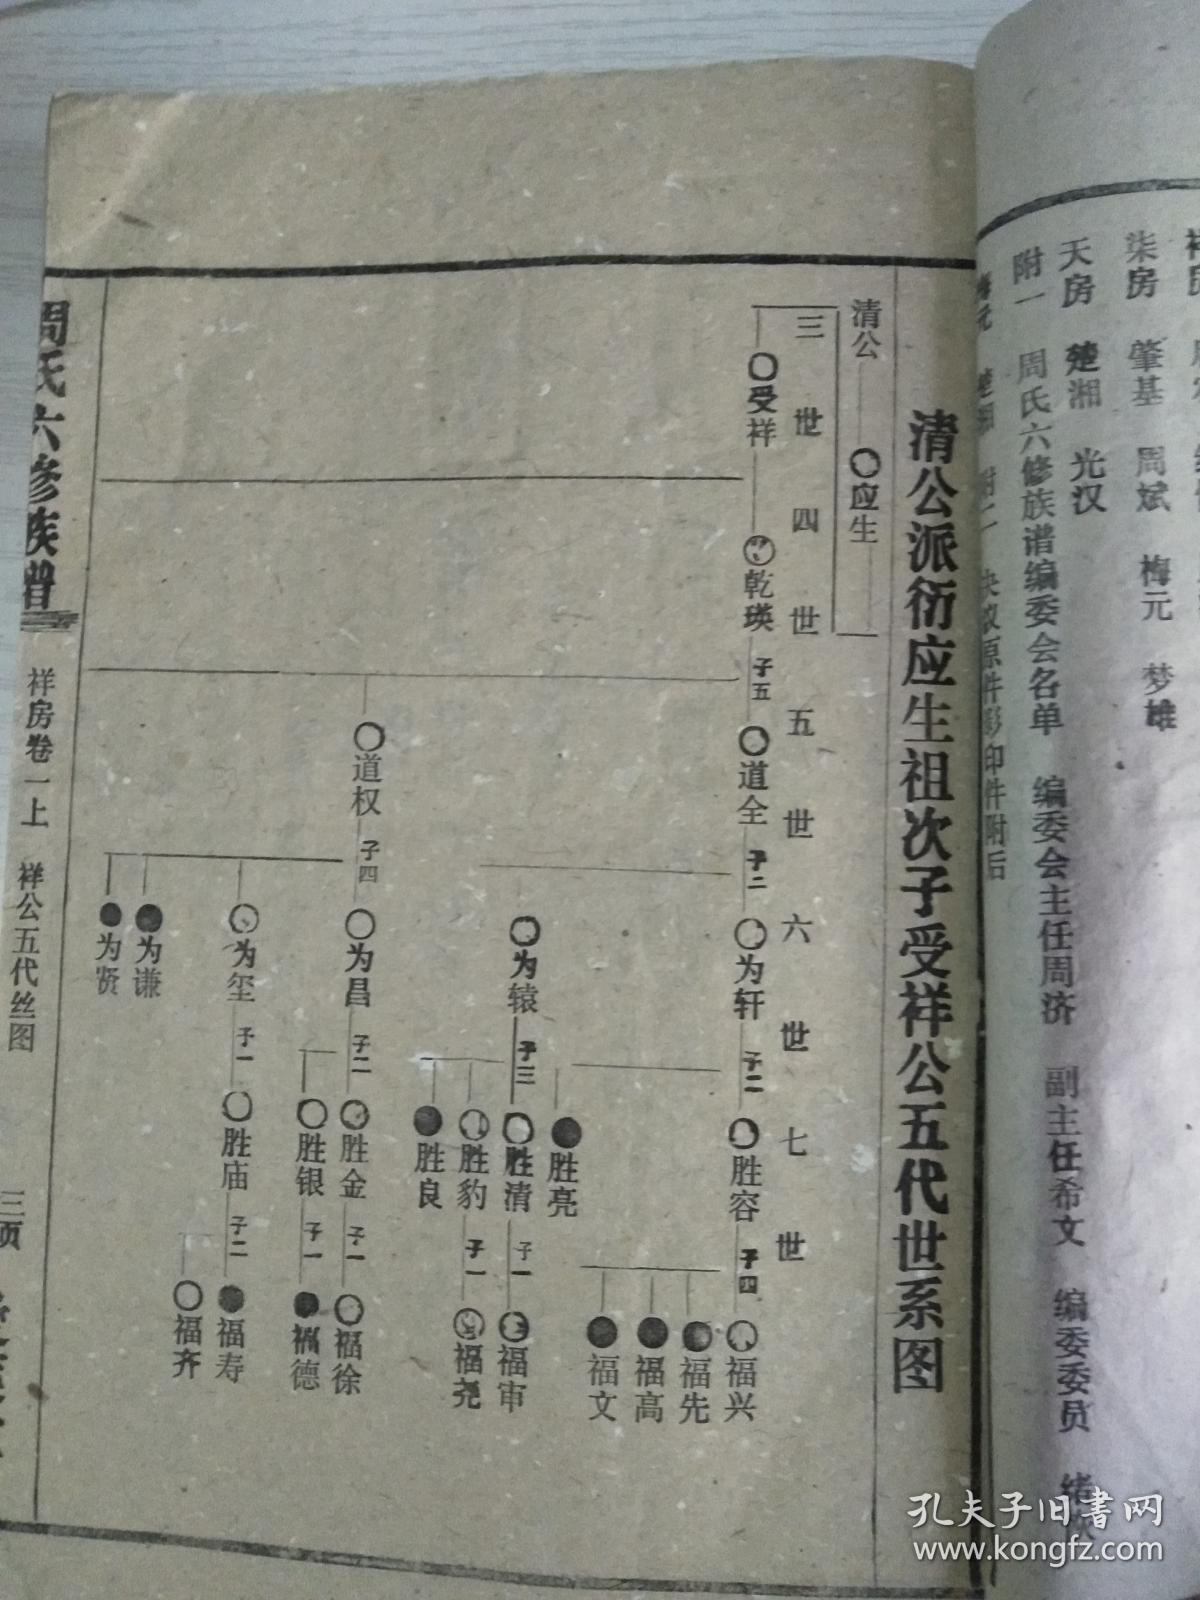 柒房 肇基 周斌 梅元 梦雄
天房 楚湘 光汉
附一 周氏六修族谱编委会名单 编委会主任周济 副主任希文 编委委员 绪
梅元 楚湘 附二 决议原件影印件附后
清公派衍应生祖次子受祥公五代世系图
清公 应生
三世 四世 五世 六世 七世
受祥 乾瑛 子五 道全 子二 为轩 子二 胜容 子四 福兴
福先
福高
福文
胜亮
为辕 子三 胜清 子一 福审
胜豹 子一 福尧
胜良
道权 子四 为昌 子二 胜金 子一 福徐
胜银 子一 福德
为玺 子一 胜庙 子二 福寿
福齐
为谦
为贤
周氏六修族谱 祥房卷一上 祥公五代丝图 三页
孔夫子旧书网
www.kongfz.com